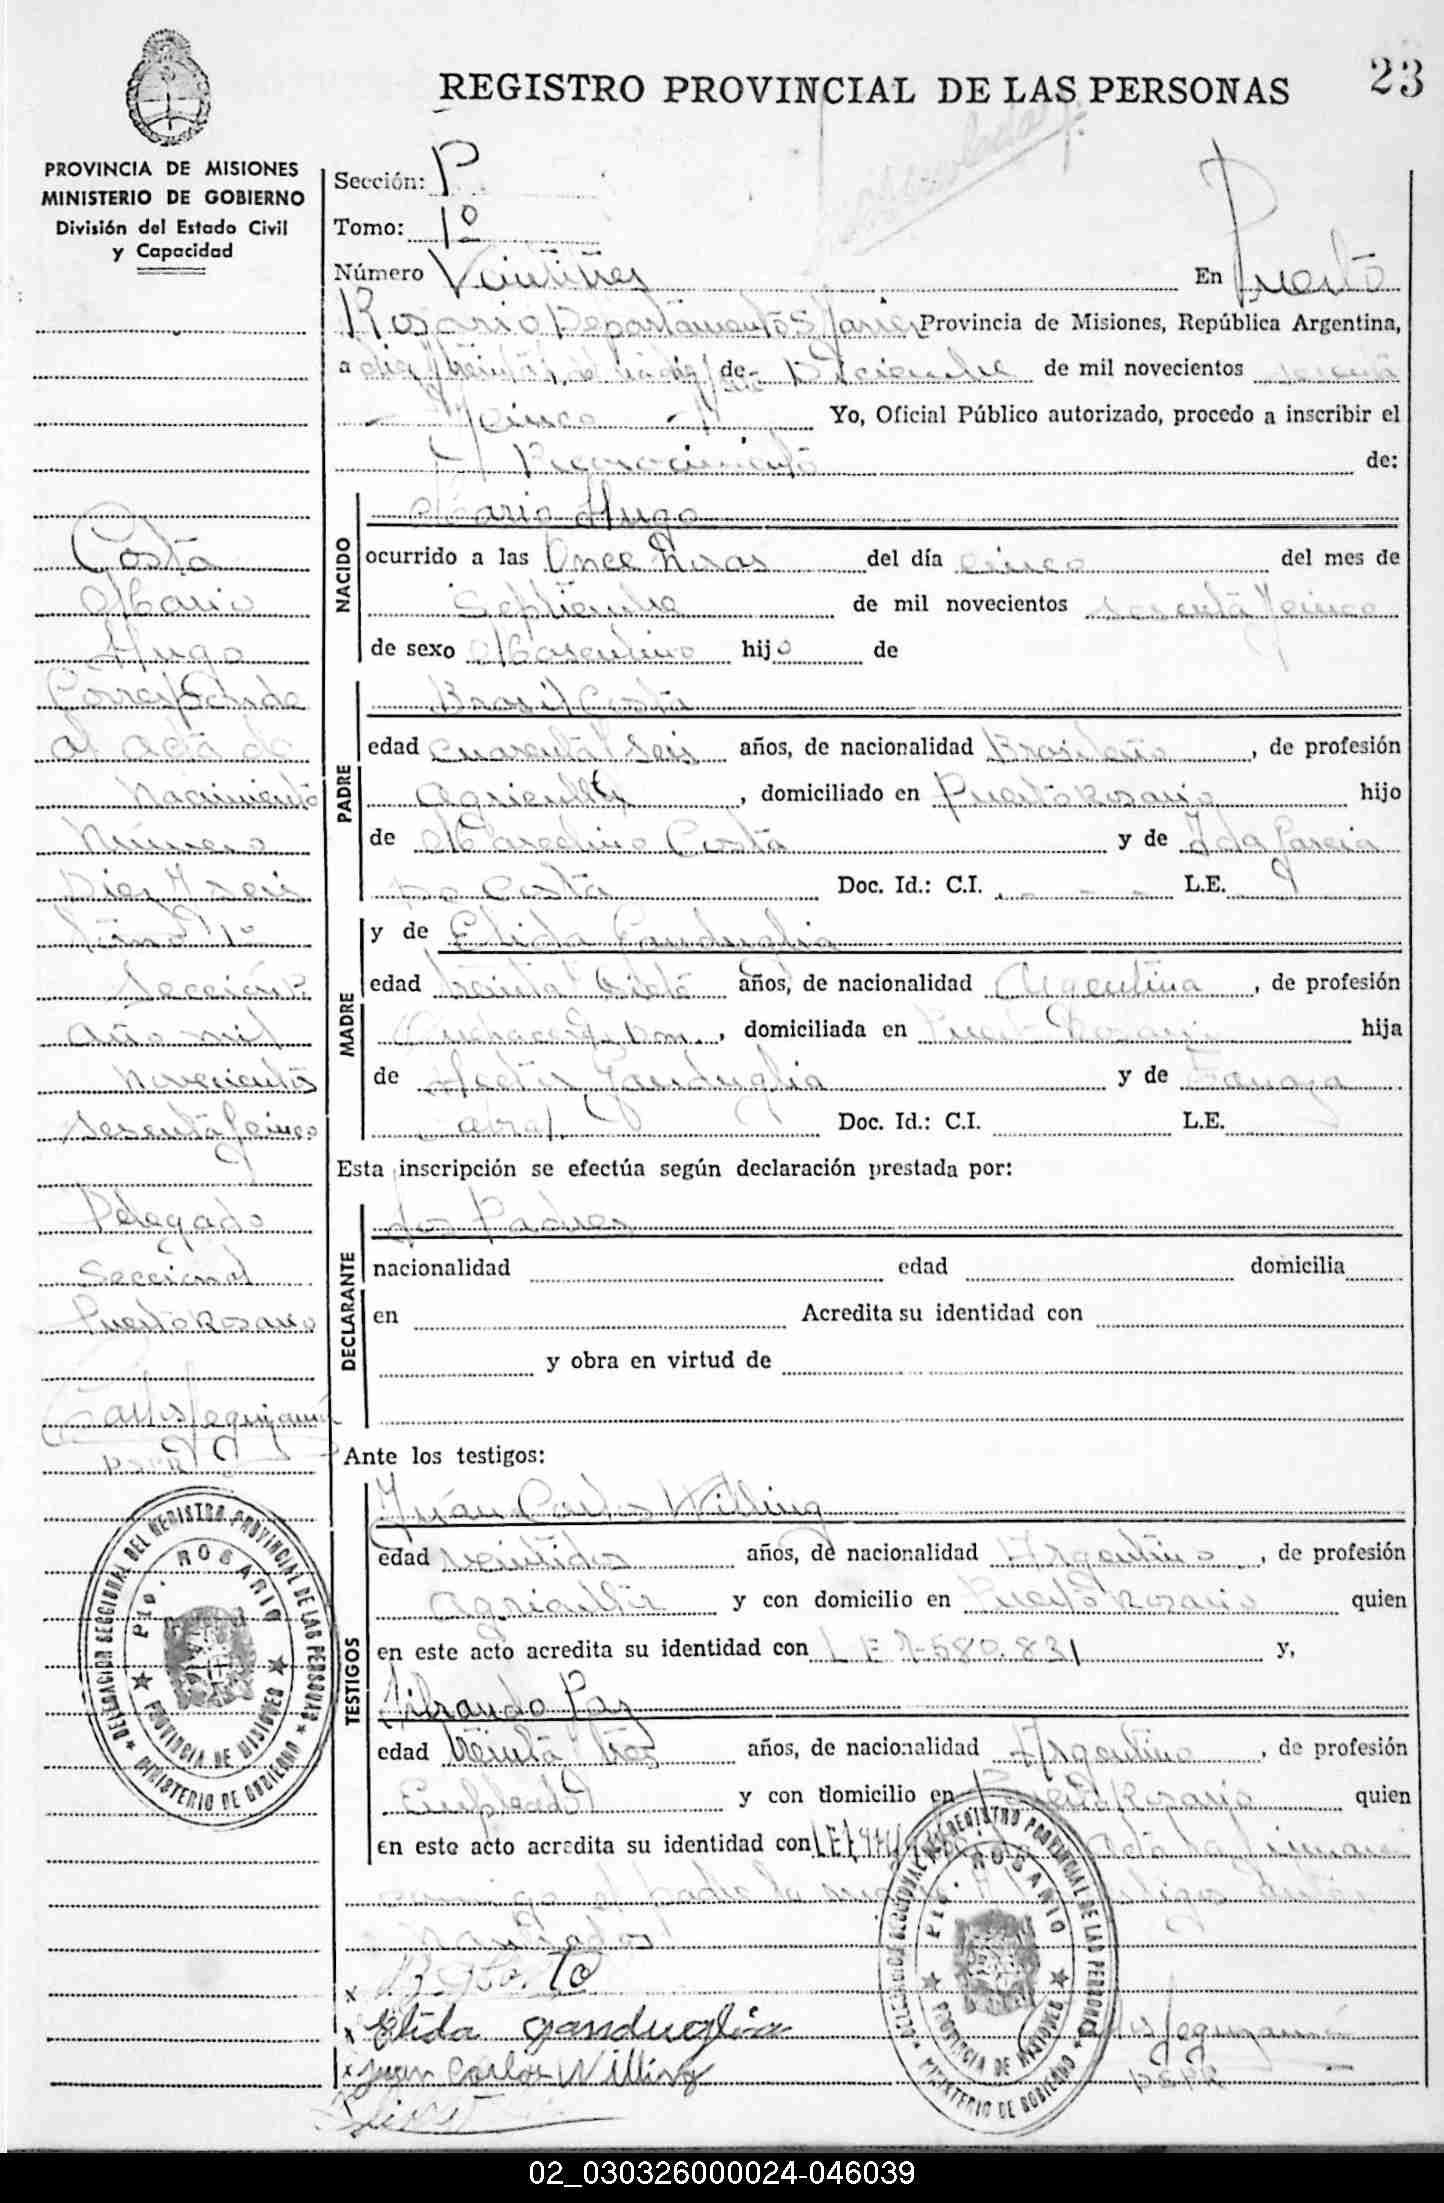 23
REGISTRO PROVINCIAL DE LAS PERSONAS
PROVINCIA DE MISIONES
MINISTERIO DE GOBIERNO
División del Estado Civil
y Capacidad
Sección: P
Tomo: 1º
Número Veintitres En Puerto
Rosario Departamento S Javier Provincia de Misiones, República Argentina,
a de Diciembre de mil novecientos sesenta
y cinco Yo, Oficial Público autorizado, procedo a inscribir el
Reconocimiento de:
NACIDO
Mario Hugo
ocurrido a las Once horas del día cinco del mes de
Septiembre de mil novecientos sesenta y cinco
de sexo Masculino hijo de
PADRE
Brasil Costa
edad cuarenta y seis años, de nacionalidad Brasileño, de profesión
Agricultor, domiciliado en Puerto Rosario hijo
de Marcelino Costa y de Ida Garcia
De Costa Doc. Id.: C.I. - - - L.E.
MADRE
y de Elida Ganduglia
edad treinta siete años, de nacionalidad Argentina, de profesión
Quehaceres Dom., domiciliada en Puerto Rosario hija
de Hector Ganduglia y de
Doc. Id.: C.I. L.E.
Esta inscripción se efectúa según declaración prestada por:
DECLARANTE
Los Padres
nacionalidad edad domicilia
en Acredita su identidad con
y obra en virtud de
Ante los testigos:
TESTIGOS
Juan Carlos Willing
edad veintidos años, de nacionalidad Argentino, de profesión
Agricultor y con domicilio en Puerto Rosario quien
en este acto acredita su identidad con L E 7.580.831 y,
Paz
edad treinta tres años, de nacionalidad Argentino, de profesión
Empleado y con domicilio en Puerto Rosario quien
en este acto acredita su identidad con L E acta la firman
conmigo el padre la madre testigos
Costa
Elida Ganduglia
Juan Carlos Willing
Costa
Mario
Hugo
Corresponde
al acta de
Nacimiento
Número
Diez y seis
tomo 1º
Sección P.
Año mil
Novecientos
sesenta y cinco
Delegado
Seccional
Puerto Rosario
DELEGACION SECCIONAL DEL REGISTRO PROVINCIAL DE LAS PERSONAS
Pto. ROSARIO
PROVINCIA DE MISIONES
MINISTERIO DE GOBIERNO
DELEGACION SECCIONAL DEL REGISTRO PROVINCIAL DE LAS PERSONAS
Pto. ROSARIO
PROVINCIA DE MISIONES
MINISTERIO DE GOBIERNO
02_030326000024-046039